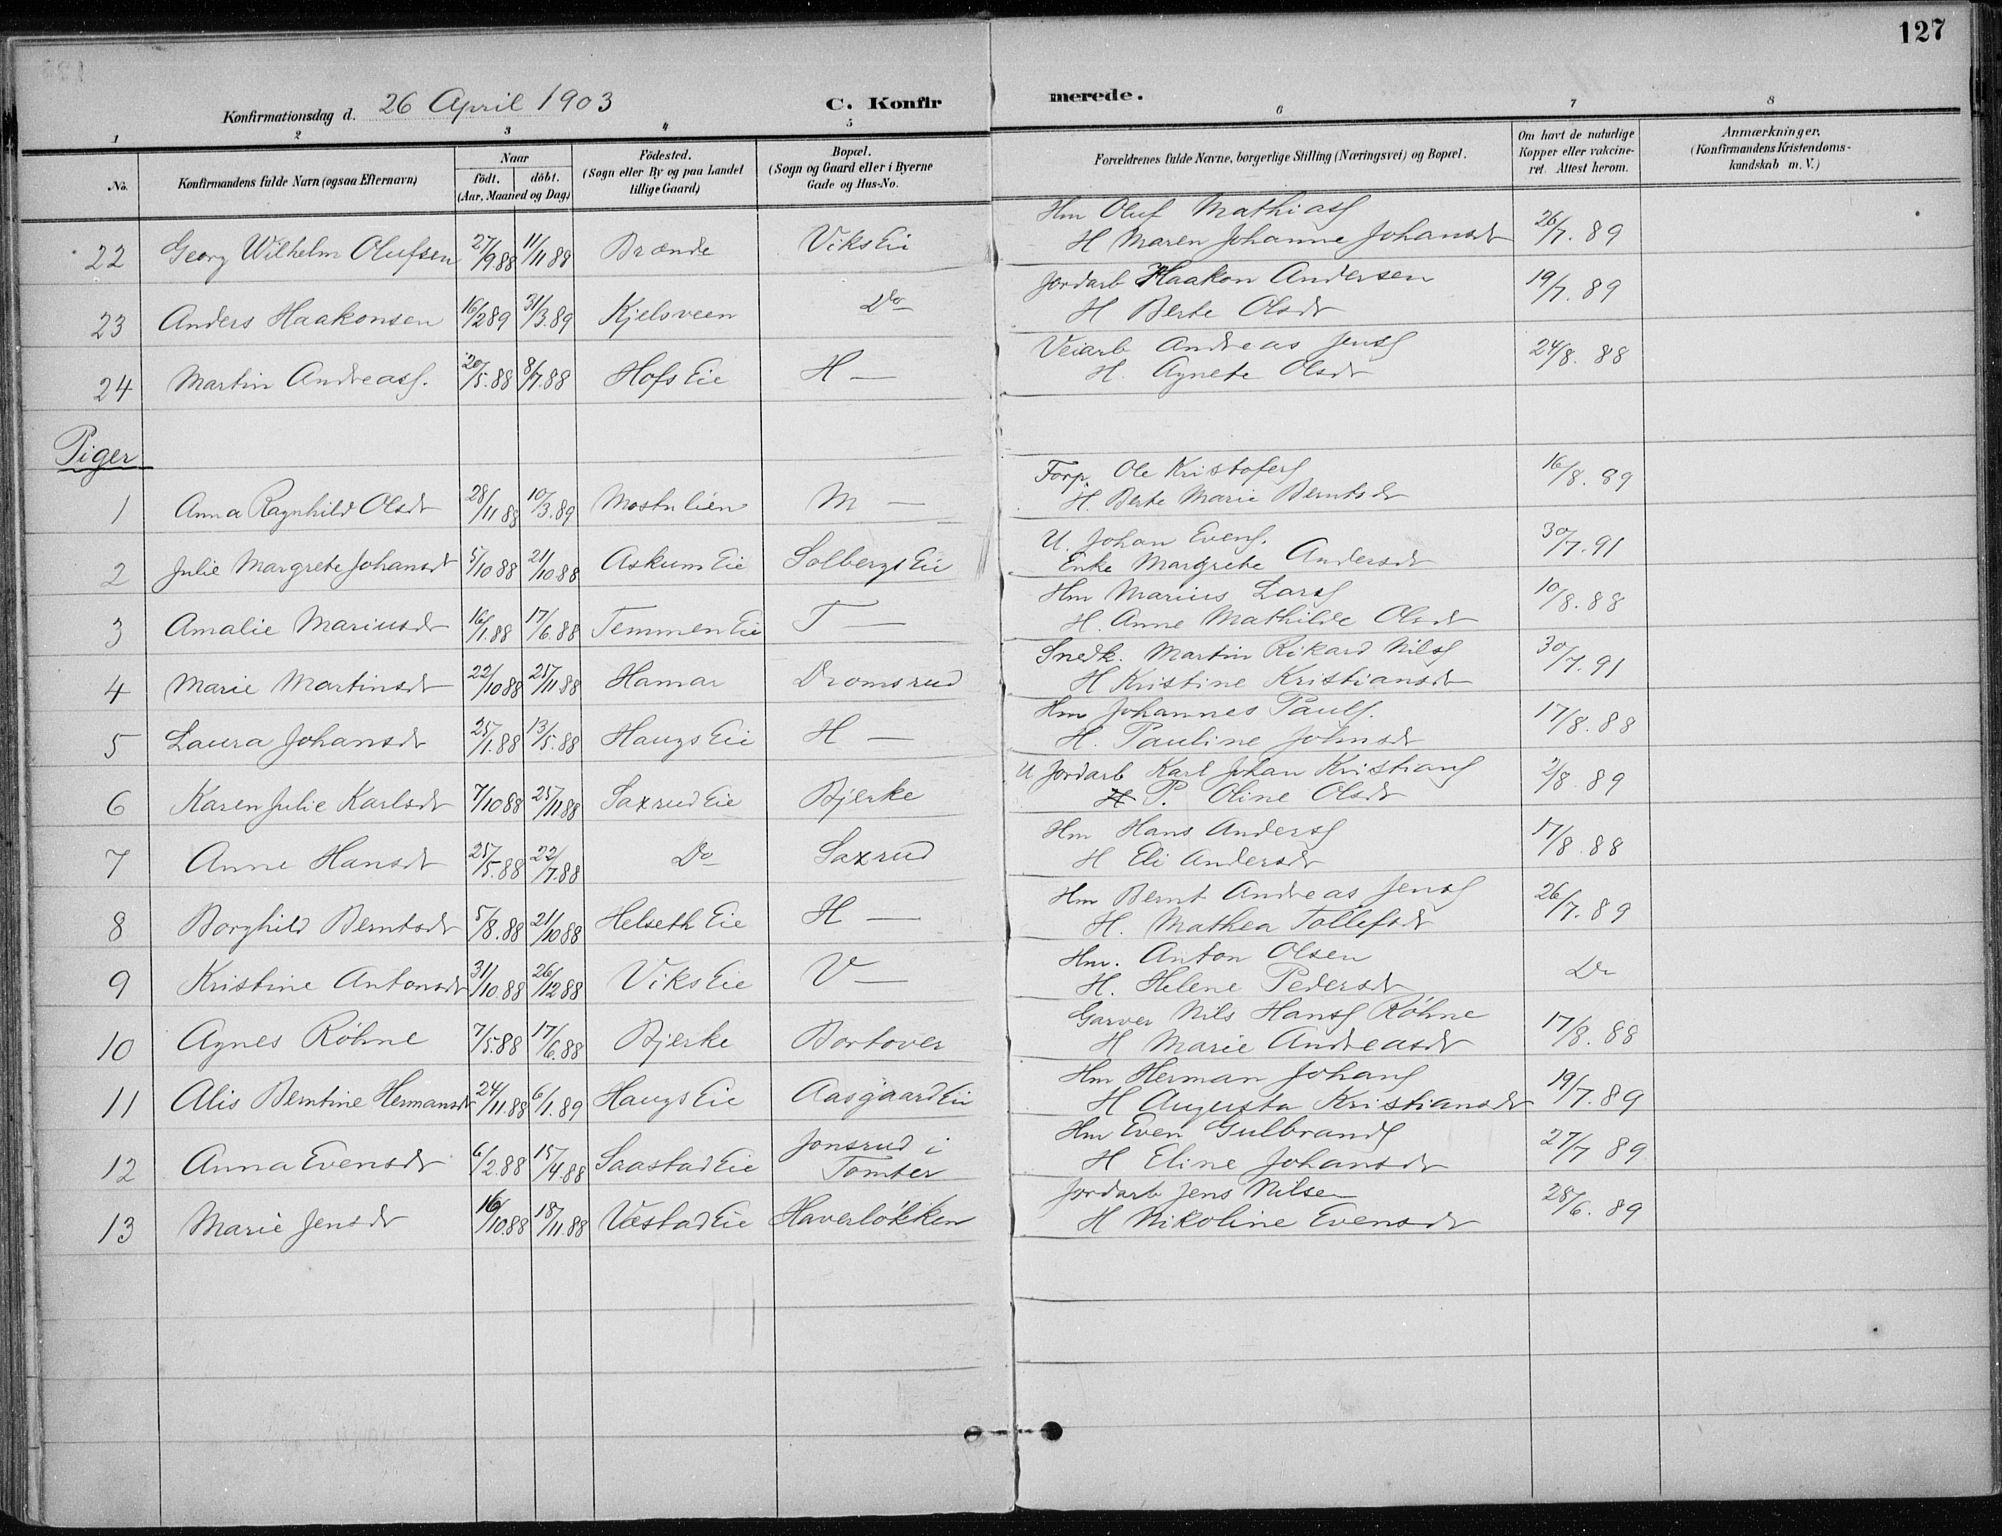 127
Konfirmationsdag d. 26 April 1903 C. Konfirmerede.
1 2 3 4 5 6 7 8
No. Konfirmandens fulde Navn (ogsaa Efternavn) Naar födt. döbt. (Aar, Maaned og Dag) Födested. (Sogn eller By og paa Landet tillige Gaard) Bopæl. (Sogn og Gaard eller i Byerne Gade og Hus-No. Forældrenes fulde Navne, borgerlige Stilling (Næringsvei) og Bopæl. Om havt de naturlige Kopper eller vakcineret. Attest herom. Anmærkninger. (Konfirmandens Kristendomskundskab m. V.)
22 Georg Wilhelm Olufsen 27/9.88 11/11 88 Brænde Viks Eie Hm Oluf Mathias
H Maren Johanne Johansdr 26/7. 89
23 Anders Haakonsen 16/2 89 31/3.89 Kjelsveen Do Jordarb Haakon Andersen
H Berte Olsdr 19/7. 89
24 Martin Andreass. 20/5.88 8/7.88 Hofs Eie H — Veiarb Andreas Jenss
H. Agnete Olsdr 24/8. 88
Piger
1 Anna Ragnhild Olsdr 28/11 88 10/3.89 M — Forp. Ole Kristofers
H. Berte Marie Berntsdr 16/8. 89
2 Julie Margrete Johansdr 5/10 88 21/10.88 Askum Eie Solbergs Eie U. Johan Evens.
Enke Margrete Andersdr 30/7.91
3 Amalie Mariusdr 16/1.88 17/6.88 Temmen Eie T — Hm Marius Larss
H. Anne Mathilde Olsdr 10/8.88
4 Marie Martinsdr 22/10 88 25/11.88 Hamar Dromsrud Snedk. Martin Rikard Nilss
H Kristine Kristiansdr 30/7.91
5 Laura Johansdr 25/1.88 13/5.88 Haugs Eie H — Hm Johannes Pauls.
H. Pauline Johnsdr 17/8.88
6 Karen Julie Karlsdr 7/10 88 25/11 88 Saxrud Eie Bjerke U Jordarb Karl Johan Kristians
H P. Oline Olsdr 2/8. 89
7 Anne Hansdr 25/5.88 22/7.88 Do Saxrud Hm Hans Anderss
H Eli Andersdr 17/8.88
8 Borghild Berntsdr 5/8.88 21/10 88 Helseth Eie H — Hm Bernt Andreas Jenss
H. Mathea Tollefsdr 26/7.89
9 Kristine Antonsdr 31/10.88 26/12 88 Viks Eie V — Hm. Anton Olsen
H. Helene Pedersdr Do
10 Agnes Röhne 7/5.88 17/6.88 Bjerke Bortover Garver Nils Hanss Röhne
H Marie Andreasdr 17/8. 88
11 Alis Berntine Hermansdr 24/11.88 6/1.89 Haugs Eie Aasgaard Eie Hm Herman Johans
H Augusta Kristiansdr 19/7.89
12 Anna Evensdr 6/2.88 15/4.88 Saastad Eie Jonsrud i Tomter Hm Even Gulbrands
H Eline Johansdr 27/7 89
13 Marie Jensdr 16/10.88 18/11.88 Vestad Eie Haverlökken Jordarb Jens Nilsen
H Nikoline Evensdr 28/6. 89